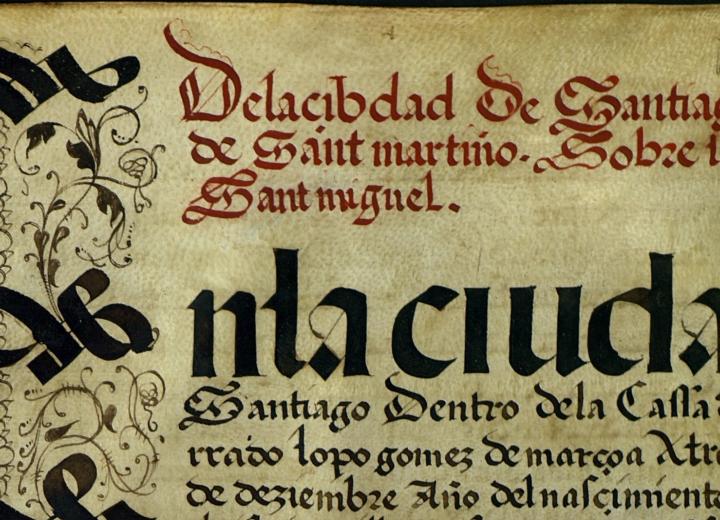 Delacibdad De Santiag
de Sant martiño. Sobre
Sant miguel.
nla ciuda
Santiago Dentro dela Cassa
rrado lopo gomez de marçoa
de deziembre Año del nasçimiento